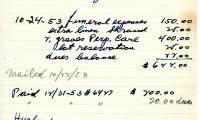 10-24-53 funeral expenses 150.00
extra linen shroud 25.00
2 graves Perp. Care 400.00
lot reservation 25.00
dues balance
$677.00
Mailed 10/27/53
Paid 12/31-53 # $ 700.00
20.00 dues